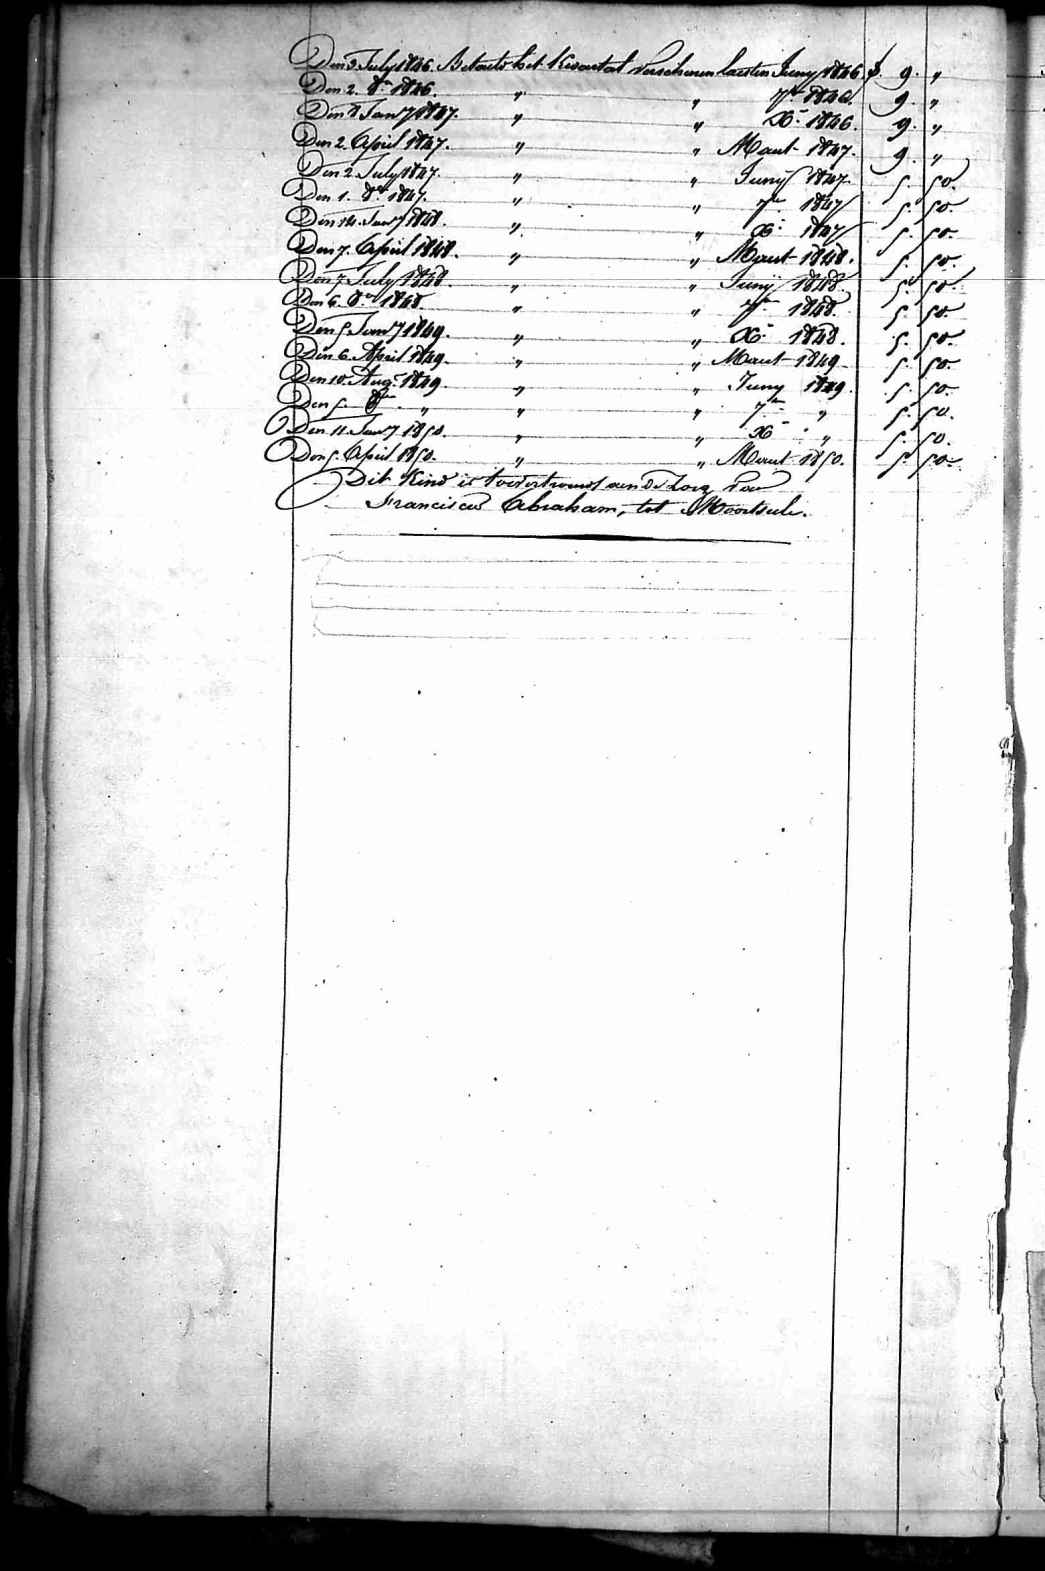 Den 3 July 1846. Betaeld het Kwartal verschenen laesten Juny 1846 f. 9. "
Den 2. 8er 1846. " " 7er 1846. 9. "
Den 8 Janry 1847. " " Xr 1846. 9. "
Den 2 April 1847. " " Maert 1847. 9. "
Den 2 July 1847. " " Juny 1847. 5. 50.
Den 1. 8er 1847. " " 7er 1847 5. 50.
Den 14. Janry 1848. " " Xr 1847 5. 50.
Den 7. April 1848. " " Maert 1848. 5. 50.
Den 7. July 1848. " " Juny 1848. 5. 50.
Den 6. 8er 1848. " " 7er 1848. 5. 50.
Den 5 Janry 1849. " " Xr 1848. 5. 50.
Den 6. April 1849. " " Maert 1849. 5. 50.
Den 10. Augt 1849. " " Juny 1849. 5. 50.
Den 5. 8er " " " 7er " 5. 50.
Den 11. Janry 1850. " " Xr " 5. 50.
Den 5. April 1850. " " Maert 1850. 5. 50.
Dit Kind is toevertrouwd aen de Zorg van
Franciscus Abraham, tot Moorseele.